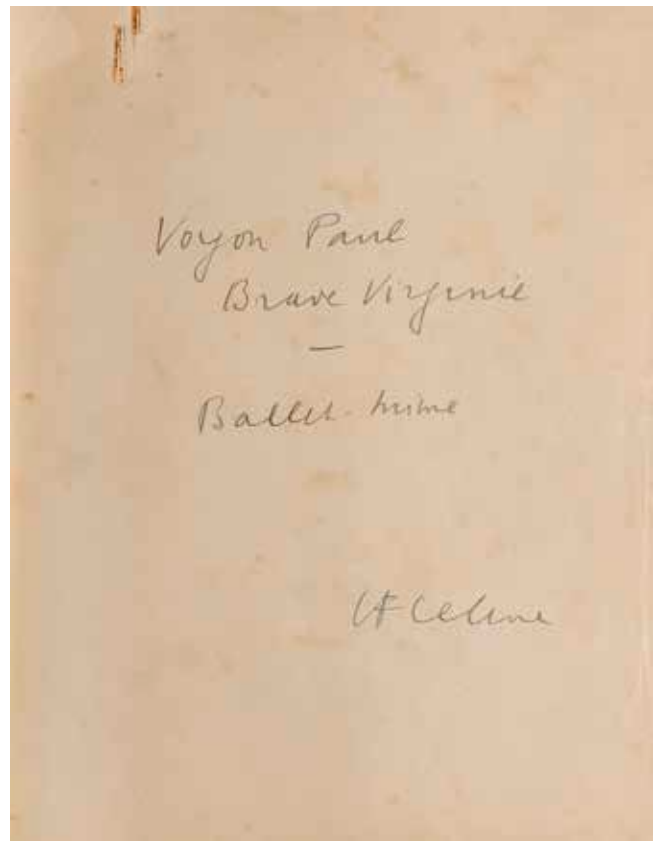 Voyon Paul
Brave Virginie
—
Ballet-mime
LF Celine